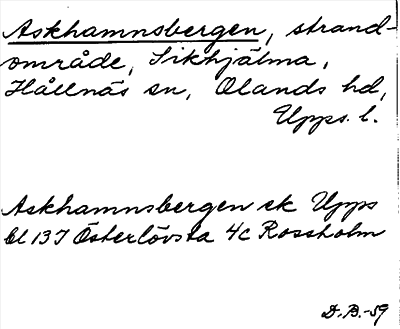 Askhamnsbergen, strand-
område, Sikhjälma,
Hållnäs sn, Olands hd,
Upps. l.
Askhamnsbergen ek Upps
bl 13 I Österlövsta 4c Rossholm
D.B.-59